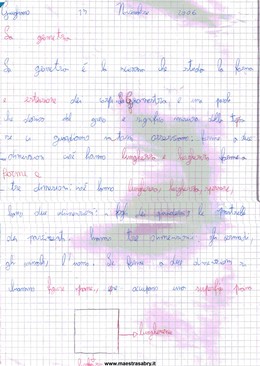 Giugliano 17 Novembre 2006
La geometria
La geometria è la scienza che studia la forma
e estensione dei corpi. Geometria, è una parola
che deriva dal greco e significa misura della
se ci guardiamo intorno osserviamo forme a due
dimensioni cioè hanno lunghezza e larghezza
forme a
tre dimensioni cioè hanno lunghezza, larghezza, spessore,
hanno due dimensioni: i fogli di quaderno le
dei pavimenti. hanno tre dimensioni: gli armadi,
gli l'uomo. Le forme a due dimensioni si
chiamano figure piane, che occupano una superficie piana
lunghezza
www.maestrasabry.it